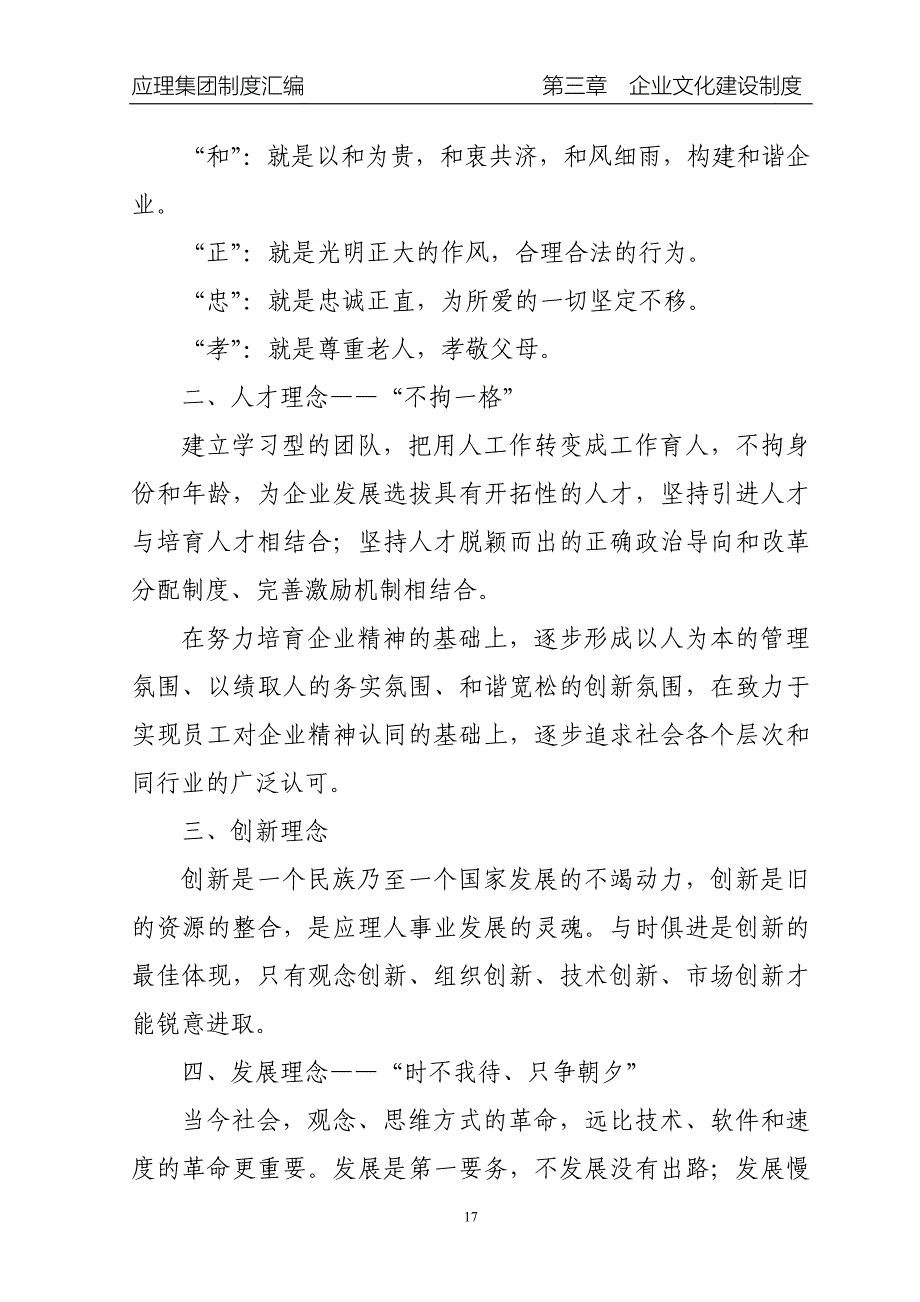 应理集团制度汇编 第三章 企业文化建设制度
“和”：就是以和为贵，和衷共济，和风细雨，构建和谐企
业。
“正”：就是光明正大的作风，合理合法的行为。
“忠”：就是忠诚正直，为所爱的一切坚定不移。
“孝”：就是尊重老人，孝敬父母。
二、人才理念——“不拘一格”
建立学习型的团队，把用人工作转变成工作育人，不拘身
份和年龄，为企业发展选拔具有开拓性的人才，坚持引进人才
与培育人才相结合；坚持人才脱颖而出的正确政治导向和改革
分配制度、完善激励机制相结合。
在努力培育企业精神的基础上，逐步形成以人为本的管理
氛围、以绩取人的务实氛围、和谐宽松的创新氛围，在致力于
实现员工对企业精神认同的基础上，逐步追求社会各个层次和
同行业的广泛认可。
三、创新理念
创新是一个民族乃至一个国家发展的不竭动力，创新是旧
的资源的整合，是应理人事业发展的灵魂。与时俱进是创新的
最佳体现，只有观念创新、组织创新、技术创新、市场创新才
能锐意进取。
四、发展理念——“时不我待、只争朝夕”
当今社会，观念、思维方式的革命，远比技术、软件和速
度的革命更重要。发展是第一要务，不发展没有出路；发展慢
17